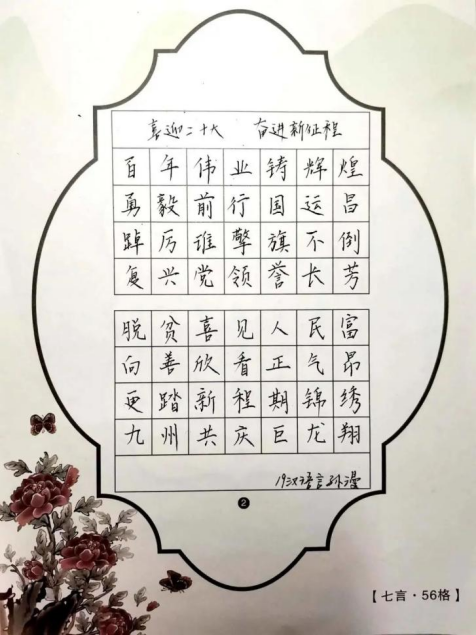 喜迎二十大 奋进新征程
百年伟业铸辉煌
勇毅前行国运昌
踔厉谁擎旗不倒
复兴党领誉长芳
脱贫喜见人民富
向善欣看正气昂
更踏新程期锦绣
九州共庆巨龙翔
19汉语言孙漫
2
【七言·56格】